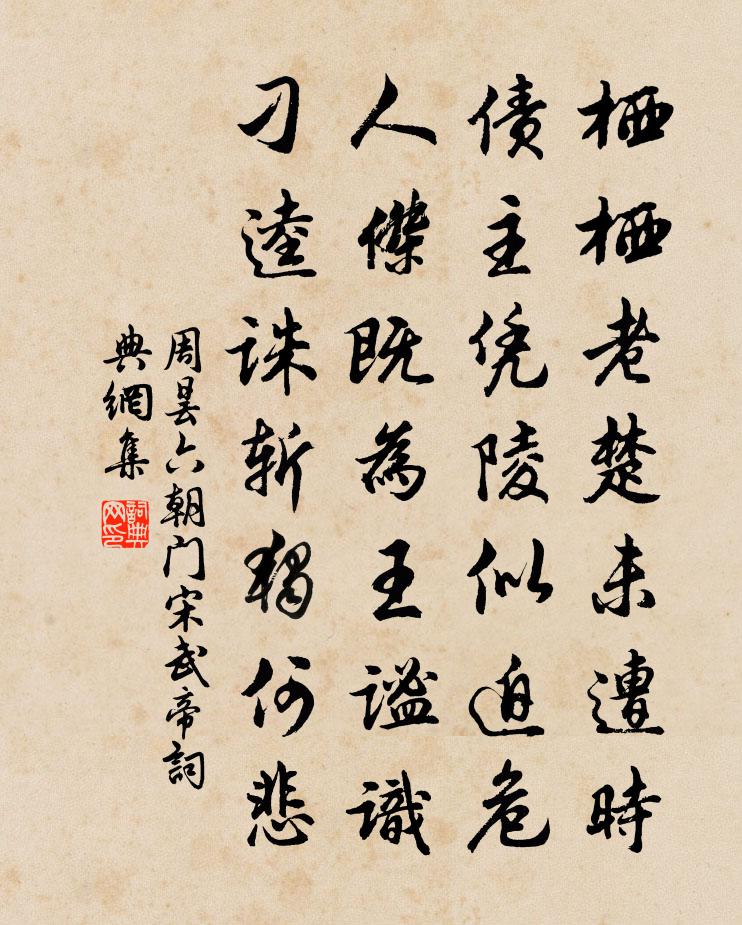 栖栖老楚未遭時
债主凭陵似迫危
人傑既為王謐識
刁逵誅斬獨何悲
周曇六朝门宋武帝詞
典網集
詞典
网印